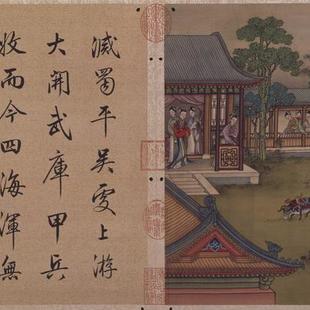 滅蜀平吳更上游
大開武庫甲兵
收而今四海渾無